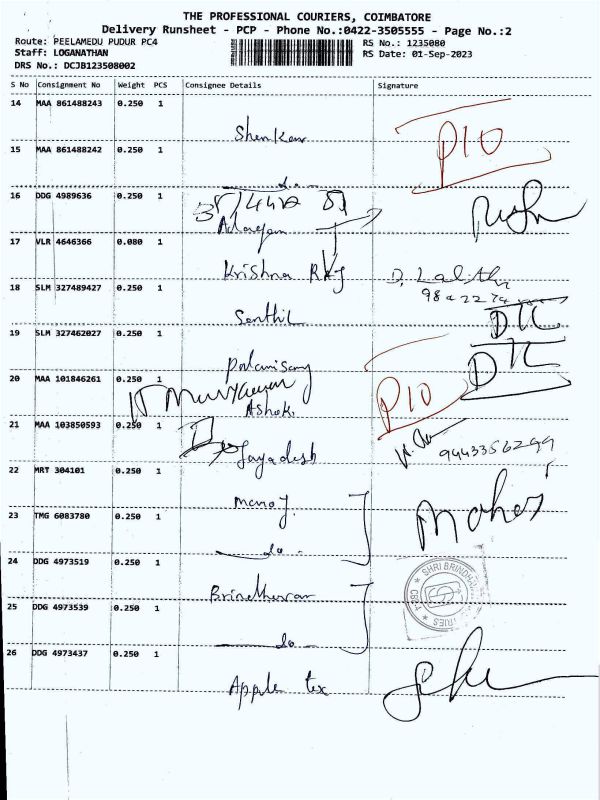 THE PROFESSIONAL COURIERS, COIMBATORE
Delivery Runsheet - PCP - Phone No.:0422-3505555 - Page No.:2
Route: PEELAMEDU PUDUR PC4
RS No.: 1235080
Staff: LOGANATHAN
RS Date: 01-Sep-2023
DRS No.: DCJB123508002
S No Consignment No Weight PCS Consignee Details Signature
14 MAA 861488243 0.250 1
Shenkar
P10
15 MAA 861488242 0.250 1
do
16 DDG 4989636 0.250 1
17 VLR 4646366 0.080 1
Krishna Raj D. Lalitha
18 SLM 327489427 0.250 1
Senthil
19 SLM 327462027 0.250 1
Palanisamy
20 MAA 101846261 0.250 1
Ashok
P10
21 MAA 103850593 0.250 1
Jayadesh 9443356299
22 MRT 304101 0.250 1
Manoj
23 TMG 6083780 0.250 1
do
24 DDG 4973519 0.250 1
SHRI BRINDHA
25 DDG 4973539 0.250 1
do
26 DDG 4973437 0.250 1
Apple tex